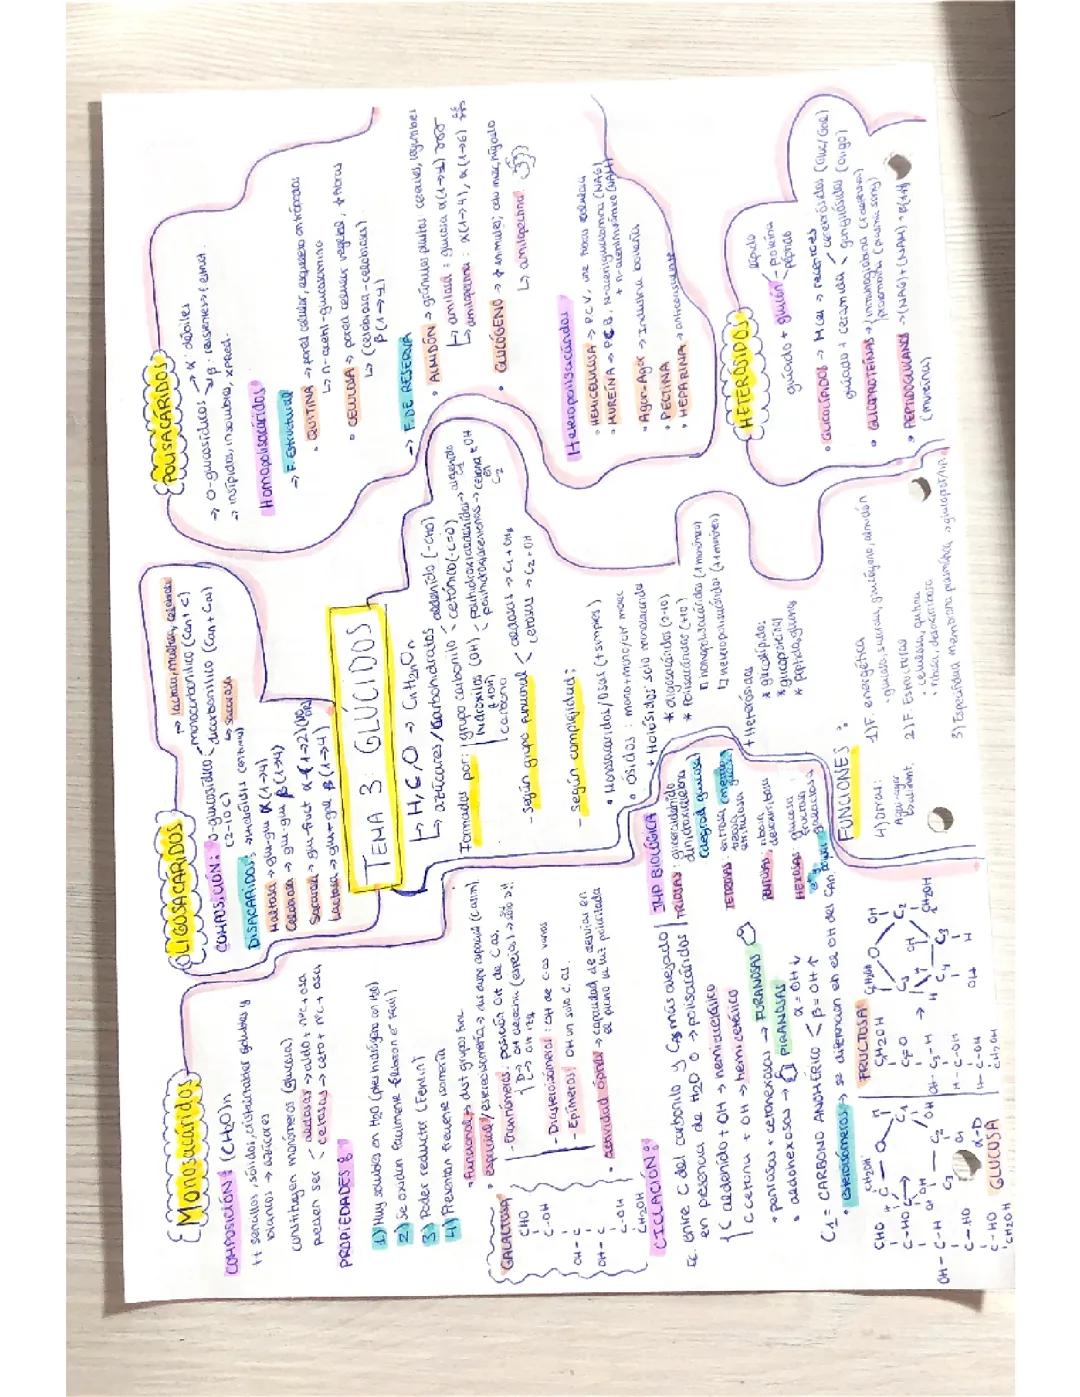 TEMA 3: GLÚCIDOS
↳ H, C, O → CnH2nOn
↳ azúcares/carbohidratos
Formados por: grupo carbonilo < aldehído (-CHO)
cetónico (-C=O)
hidroxilos (OH) < polihidroxialdehídos → aldehído
polihidroxiacetonas → cetona + OH
- Según grupo funcional < aldosas → C1 + OH
cetosas → C2 + OH
- Según complejidad:
• Monosacáridos/osas (+ simples)
• Ósidos: mono + mono/otr molec
+ Holósidos solo monosacárido
* oligosacáridos (2-10)
* Polisacáridos (+10)
homopolisacáridos (1 monómero)
↳ heteropolisacáridos (+ 1 monómero)
+ Heterósidos
* glucolípidos
* glucoproteína
* peptidoglucano
FUNCIONES:
1) F. energética
• glucosa, sucrosa, glucógeno, almidón
2) F. Estructural
: celulosa, quitina
: ribosa, desoxirribosa
3) Especifidad membrana plasmática →
4) Otras:
Agar-agar
Monosacáridos
COMPOSICIÓN: (CH2O)n
++ sencillos, sólidos, cristalinos solubles y
blancos → azúcares
constituyen monómeros (glucosa)
pueden ser < aldosas → aldo + nºc + osa
cetosas → ceto + nºc + osa
PROPIEDADES:
1) Muy solubles en H2O
2) Se oxidan fácilmente
3) Poder reductor (Fehling)
4) Presentan frecuente isomería
• funcional → dist grupos func
• espacial/estereoisomería → dist dispo espacial
- Enantiómeros: posición OH de C as.
D → OH derecha
L → OH izq
- Diastereoisómeros: OH de C as varios
- Epímeros: OH un solo C as.
• actividad óptica → capacidad de desviar en
el plano la luz polarizada
GALACTOSA
CHO
C-OH
OH-C
OH-C
C-OH
CH2OH
CICLACIÓN:
Ec. entre C del carbonilo y C as más alejado
en presencia de H2O → polisacáridos
aldehído + OH → hemiacetálico
cetona + OH → hemicetálico
• pentosas + cetohexosas → FURANOSAS
• aldohexosas → PIRANOSAS
C1 = CARBONO ANOMÉRICO < α = OH ↓
β = OH ↑
• estereoisómeros → se diferencian en el OH del C an.
CHO
C-HO
OH-C-H
C-HO
C-HO
CH2OH
CH2OH
α-D
GLUCOSA
FRUCTOSA
CH2OH
C=O
OH-C3-H
H-C-OH
H-C-OH
CH2OH
IMP BIOLÓGICA
TRIOSAS: gliceraldehído
dihidroxiacetona
(degrad glucosa)
TETROSAS: eritrosa
eritrulosa
PENTOSAS: ribosa
desoxirribosa
HEXOSAS: glucosa
fructosa
galactosa
OLIGOSACÁRIDOS
→ lactosa, maltosa, celobiosa
COMPOSICIÓN: O-glucosídico < monocarbonílico (Can + C)
(2-10 C)
dicarbonílico (Can + Can)
↳ sacarosa
DISACÁRIDOS: → hidrólisis
Maltosa → glu-glu α(1→4)
Celobiosa → glu-glu β(1→4)
Sacarosa → glu-fruct α-β(1→2)
Lactosa → glu + gal β(1→4)
POLISACÁRIDOS
→ O-glucosídicos → α: débiles
→ β: resistencia/estruct
→ insípidos, insolubles, no red.
Homopolisacáridos
→ F. Estructural
• QUITINA → pared celular, esqueleto artrópodos
↳ n-acetil-glucosamina
• CELULOSA → pared celular vegetal, fibras
↳ (celobiosa-celobiosa)
β(1→4)
→ F. DE RESERVA
• ALMIDÓN → gránulos plantas cereales, legumbres
↳ amilosa: glucosa α(1→4)
↳ amilopectina: α(1→4), α(1→6)
• GLUCÓGENO → + animales; cels musc, hígado
↳ amilopectina
Heteropolisacáridos
• HEMICELULOSA → P.C.V, une fibras celulosa
• MUREÍNA → P.C.B, n-acetilglucosamina (NAG)
+ n-acetilmurámico (NAM)
• Agar-Agar → Industria
• PECTINA
• HEPARINA → anticoagulante
HETERÓSIDOS
lípido
glúcido + glucón - proteína
péptido
• GLUCOLÍPIDOS → M cel → receptores
glúcido + ceramida < cerebrósidos (Gluc/Gal)
gangliósidos (oligo)
• GLUCOPROTEÍNAS → inmunoglobulina
protrombina (plasma sang)
• PEPTIDOGLUCANOS → (NAG) + (NAM) → β(1→4)
(mureína)